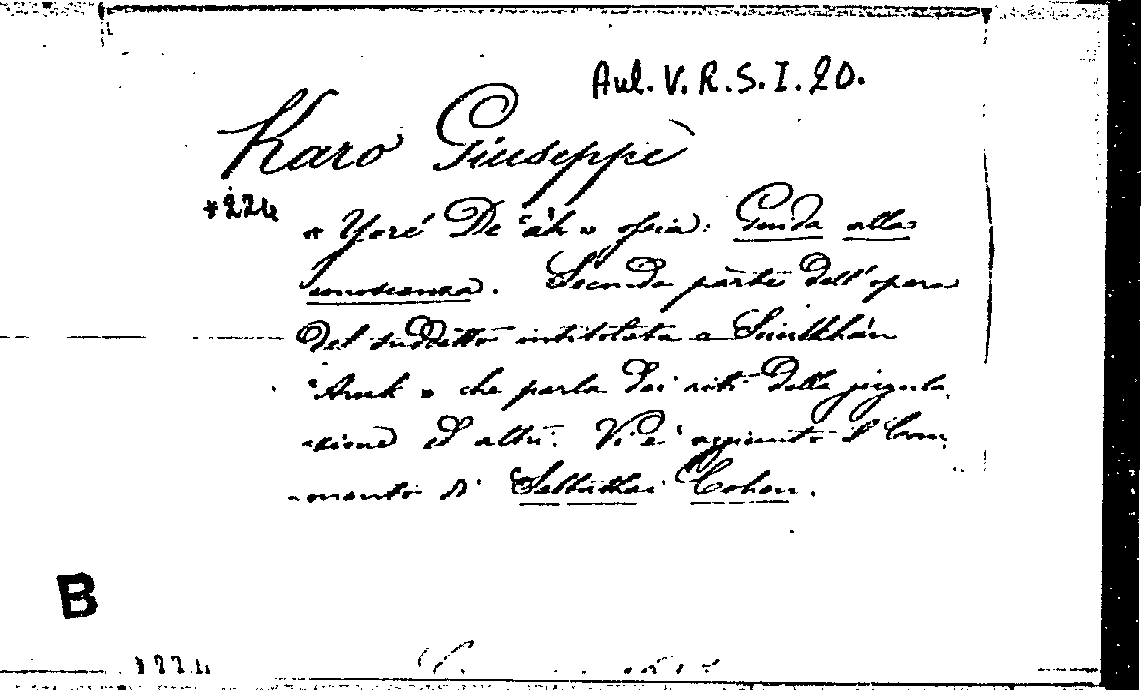 Aul. V. R. S. I. 20.
Karo Giuseppe
*224
« Yoré De 'áh » ossia: Guida alla
conoscenza. Seconda parte dell'opera
del suddetto intitolata « Sciulkhàn
'Aruk » che parla dei riti della jugula
zione ed altri. Vi è aggiunto il Com
mento di Sabbathai Cohen.
B